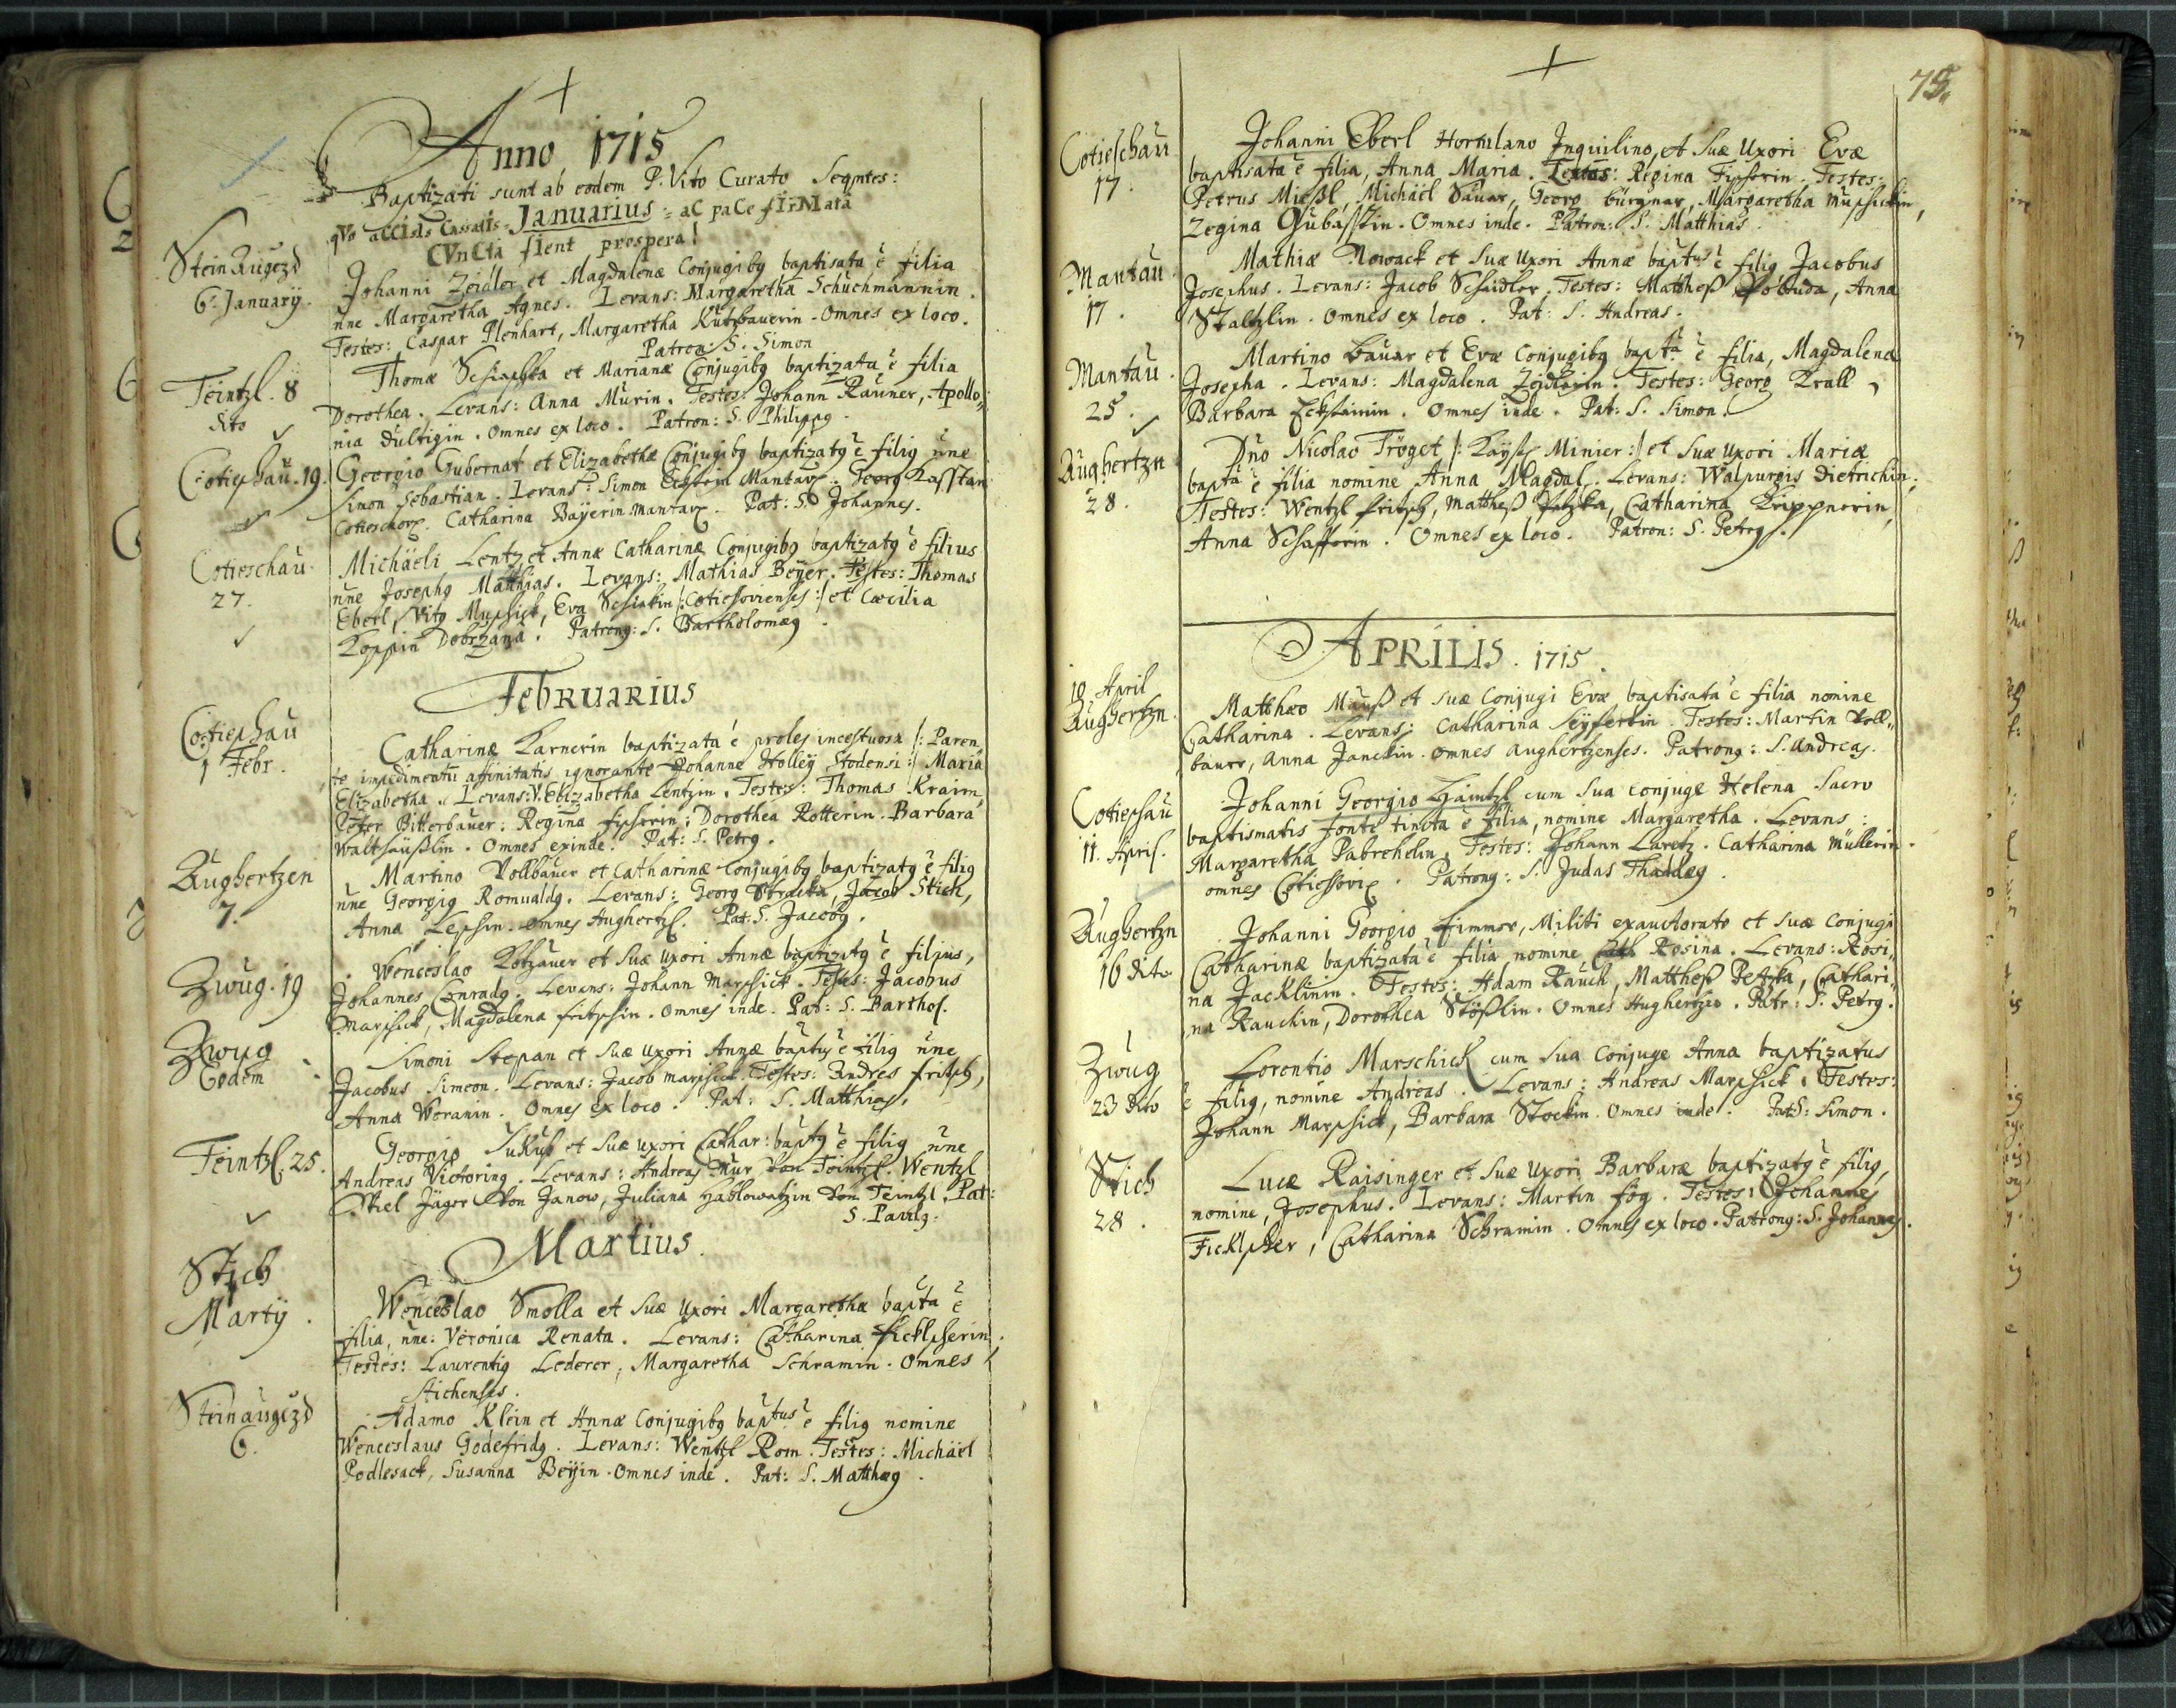 Anno 1715
Baptizati sunt ab eodem P. Vito Curato Seqntes:
qVo aCCIsIs Cassatis Januarius: aC paCe fIrMata
CVnCta fIent prospera!
Stein Augezd
6. January.
Johanni Zeidler et Magdalenæ Conjugibg baptisata ē filia
nne Margaretha Agnes. Levans: Margaretha Schuchmannin.
Testes: Caspar Plenhart, Margaretha Kutzbauerin. Omnes ex loco.
Patron: S. Simon
Teintzl. 8
dito
Thomæ et Marianæ Conjugibg baptizata ē filia
Dorothea. Levans: Anna Murin. Testes: Johann Rauner, Apollo-
nia Dultigin. Omnes ex loco. Patron: S. Philippg.
Cotieschau. 19.
Georgio Gubernat et Elizabethæ Conjugibg baptizatg ē filig nne
Simon Sebastian. Levans: Simon Mantav. Georg
Catharina Bayerin Mantav. Pat: S. Johannes.
Cotieschau.
27.
Michäeli Lentz et Annæ Catharinæ Conjugibg baptizatg ē filius
nne Josephg Matthias. Levans: Mathias Beyer. Testes: Thomas
Eberl, Vitg Eva et Cæcilia
Koppin Dobrzana. Patrong: S. Bartholomæg.
Februarius
Cotieschau
1 Febr.
Catharinæ Karnerin baptizata ē proles incestuosa /: Paren,
te impedimentū affinitatis ignorante Johanne Holley Stodensi :/ Maria
Elizabetha. Levans: V. Elizabetha Lentzin. Testes: Thomas Kraim,
Peter Bitterbauer: Regina Dorothea Rotterin. Barbara
Omnes exinde. Pat: S. Petrg.
Aughertzen
7.
Martino Vollbauer et Catharinæ Conjugibg baptizatg ē filig
nne Georgig Romualdg. Levans: Georg Jacob Stich,
Anna Omnes Aughertzs. Pat: S. Jacobg.
Zwug. 19
Wenceslao et Suæ Uxori Annæ baptizatg ē filius,
Johannes Conradg. Levans: Johann Marschick. Testes: Jacobus
Marschick, Magdalena Fritschin. Omnes inde. Pat: S. Barthol.
Zwug
Eodem
Simoni Stepan et Suæ Uxori Annæ baptg ē filig nne
Jacobus Simeon. Levans: Jacob Marschick. Testes: Andres Fritsch,
Anna Weranin. Omnes ex loco. Pat: S. Matthias.
Teintzl. 25.
Georgio et Suæ Uxori Cathar: baptg ē filig nne
Andreas Victoring. Levans: Andreas Mur von Teintzl. Wentzl
Stiel Jäger von Janow, Juliana von Teintzl. Pat:
S. Paulg.
Martius.
Stich
Martÿ.
Wenceslao Smolla et Suæ Uxori Margarethæ bapta ē
filia, nne: Veronica Renata. Levans: Catharina Ficklscherin.
Testes: Laurentig Lederer, Margaretha Schramin. Omnes
Stichenses.
Steinaugezd
6.
Adamo Klein et Annæ Conjugibg baptus ē filig nomine
Wenceslaus Godefridg. Levans: Wentzl Rom. Testes: Michäel
Podlesack, Susanna Beÿin. Omnes inde. Pat: S. Matthæg.
75.
Cotieschau
17.
Johanni Eberl Hortulano Inquilino, et Suæ Uxori Evæ
baptisata ē filia, Anna Maria. Regina Testes:
Petrus Miesl, Michäel Bauar, Georg burgnar, Margaretha
Omnes inde. Patron: S. Matthias.
Mantau.
17.
Mathiæ Nowack et Suæ Uxori Annæ baptus ē filig Jacobus
Josephus. Levans: Jacob Schaidler. Testes: Matthes Anna
Staltzlin. Omnes ex loco. Pat: S. Andreas.
Mantau.
25.
Martino Bauar et Evæ Conjugibg bapta ē filia, Magdalena
Josepha. Levans: Magdalena Zeidlerin. Testes: Georg Krall,
Barbara Omnes inde. Pat: S. Simon.
Aughertzn
28.
Dno Nicolao Tröget /: Kayss Minier :/ et Suæ Uxori Mariæ
bapta ē filia nomine Anna Magdal. Levans: Walpurgis Dietrichin,
Testes: Wentzl Fritsch, Matthes Catharina Krippnerin,
Anna Schafferin. Omnes ex loco. Patron: S. Petrg.
APRILIS. 1715.
10 April
Aughertzn.
Matthæo Mauß et Suæ Conjugi Evæ baptisata ē filia nomine
Catharina. Levans: Catharina Seyfertin. Testes: Martin Voll-
bauer, Anna Janckin. Omnes Aughertzenses. Patrong: S. Andreas.
Cotieschau
11. April.
Johanni Georgio Haintzl cum Sua Conjuge Helena Sacro
baptismatis fonte tincta ē filia, nomine Margaretha. Levans:
Margaretha Pabrehelin. Testes: Johann Laretz. Catharina Müllerin.
Omnes Patrong: S. Judas Thaddæg.
Aughertzn
16 dito
Johanni Georgio Fimmer, Militi exauctorato et Suæ Conjugi
Catharinæ baptizata ē filia nomine Rosina. Levans: Rosi-
na Jacklinin. Testes: Adam Rauch, Matthes Petzka, Cathari-
na Rauchin, Dorothea Stößlin. Omnes Aughertzio. Patr: S. Petrg.
Zwug
23 dito
Lorentio Marschick cum Sua Conjuge Anna baptizatus
ē filig, nomine Andreas. Levans: Andreas Marschick. Testes:
Johann Marschick, Barbara Stockin. Omnes inde. Pat: S. Simon.
Stich
28.
Lucæ Raisinger et Suæ Uxori Barbaræ baptizatg ē filig,
nomine, Josephus. Levans: Martin Fög. Testes: Johannes
Ficklscher, Catharina Schramin. Omnes ex loco. Patrong: S. Johannes.